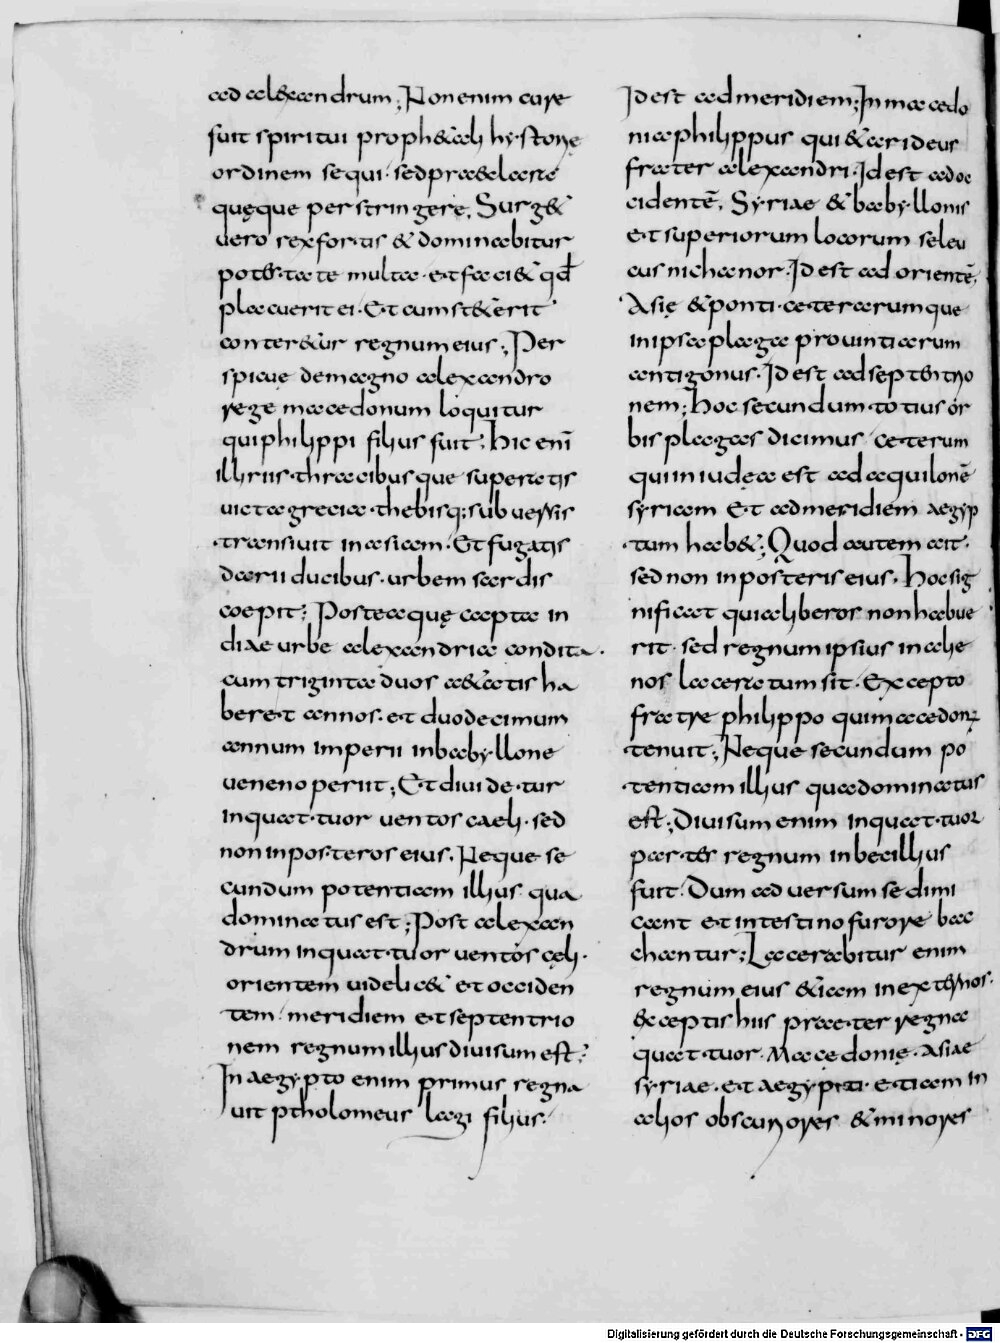 ad alexandrum; Non enim cure
fuit spiritui proph&ali hystorię
ordinem sequi· sed praeclara
quęque perstringere; Surg&
uero rex fortis & dominabitur
potestate multa· et faci& qđ
placuerit ei· Et cum st&erit
conter&ur regnum eius; Per
spicue de magno alexandro
rege macedonum loquitur
qui philippi filius fuit; Hic enī
illiriis thracibusque superatis
victa grecia· thebisq; subuersis
transiuit in asiam· Et fugatis
darii ducibus· urbem sardis
coepit; Posteaquę capta in
diae urbe alexandria condita·
cum triginta duos a&atis ha
beret annos· et duodecimum
annum imperii in babyllone
ueneno periit; Et diuidetur
in quattuor uentos caeli· sed
non in posteros eius· Neque se
cundum potentiam illius qua
dominatus est; Post alexan
drum in quattuor uentos cęli·
orientem uidelic& et occiden
tem meridiem et septentrio
nem regnum illius diuisum est;
In aegypto enim primus regna
uit ptholomeus lagi filius·
Id est ad meridiem; In macedo
nia philippus qui & arideus
frater alexandri· Id est ad oc
cidentē· Syriae & babyllonis
et superiorum locorum seleu
cus nichanor· Id est ad orientē·
Asię & ponti· ceterarumque
in ipsa plaga prouintiarum
antigonus· Id est ad septentrio
nem; Hoc secundum totius or
bis plagas dicimus ceterum
qui in iudęa est ad aquilonē
syriam et ad meridiem aegyp
tum hab&; Quod autem ait·
sed non in posteris eius· Hoc sig
nificat quia liberos non habue
rit sed regnum ipsius in alie
nos laceratum sit· Excepto
fratre philippo qui macedonꝝ
tenuit; Neque secundum po
tentiam illius qua dominatus
est; Diuisum enim in quattuor
partes regnum inbecillius
fuit· Dum aduersum se dimi
cant et intestino furore bac
chantur; Lacerabitur enim
regnum eius &iam in externos·
&ceptis hiis praeter regna
quattuor· Macedonię· asiae
syriae· et aegypti· etiam in
alios obscuriores & minores
Digitalisierung gefördert durch die Deutsche Forschungsgemeinschaft - DFG